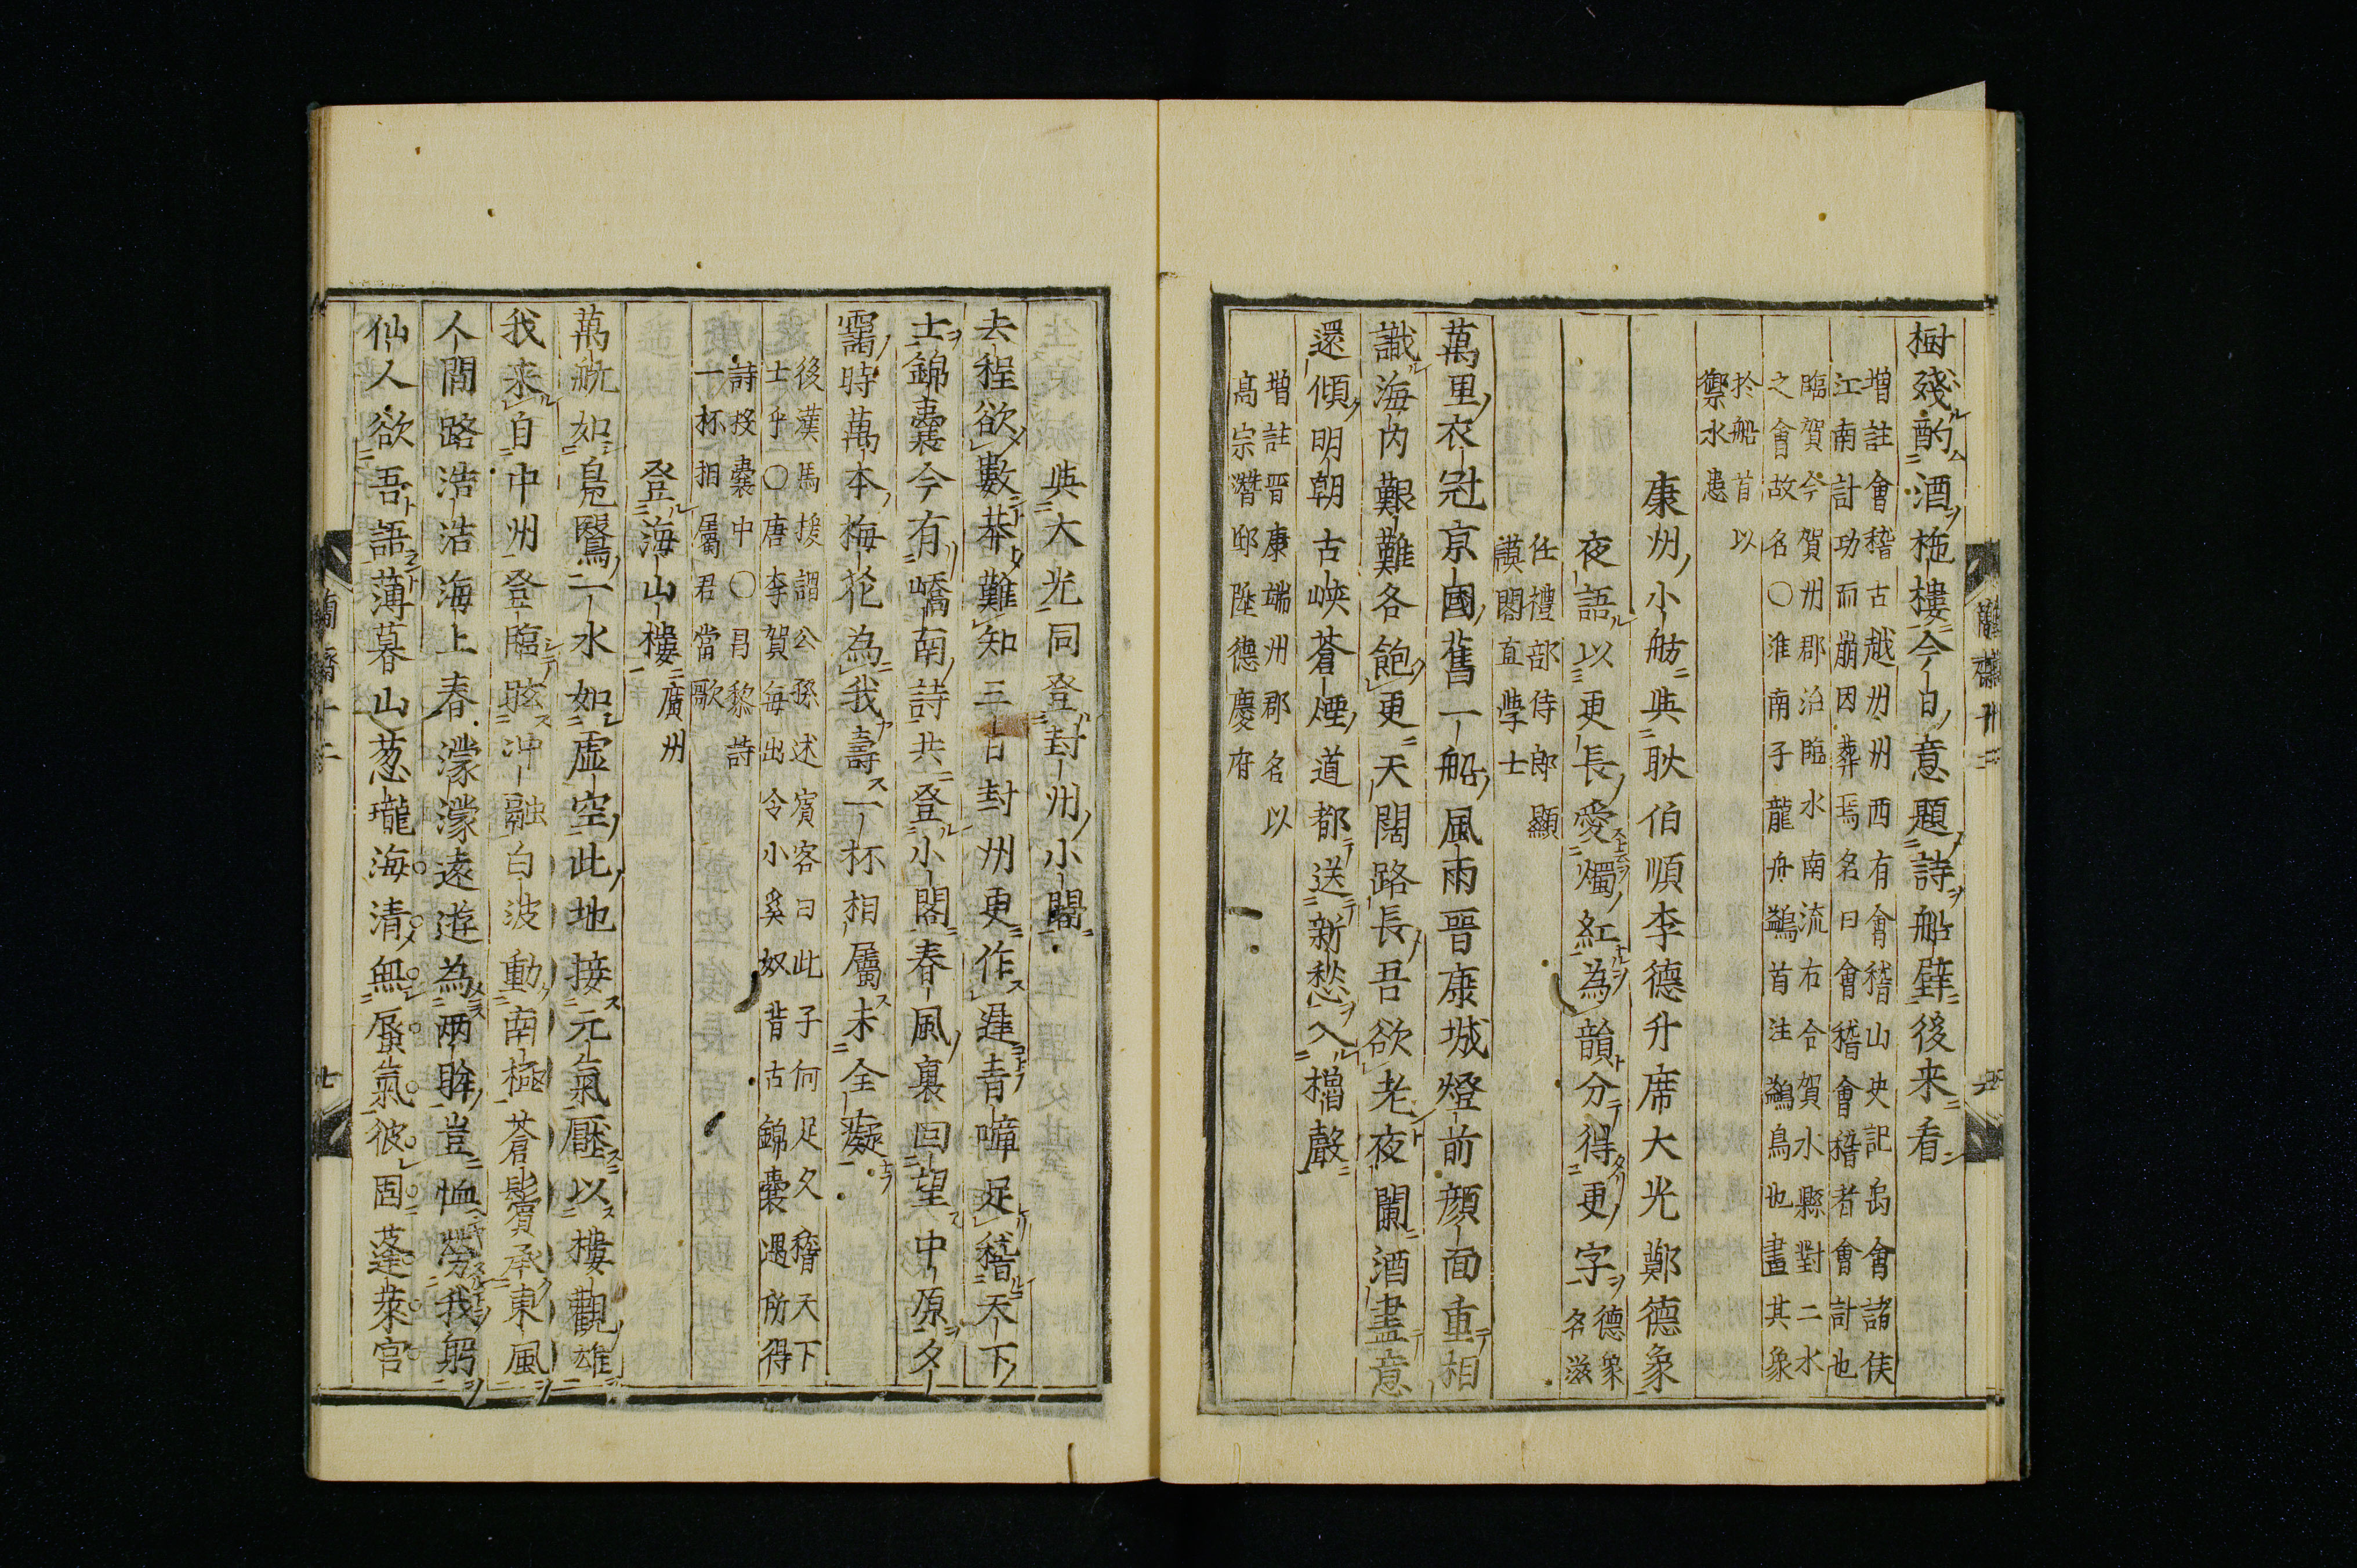 樹殘酌酒柂樓今日意題詩船壁後来看
増註會稽古越州州西有會稽山史記禹會諸侯
江南計功而崩因葬焉名曰會稽會稽者會計也
臨賀今賀州郡治臨水南流右合賀水縣對二水
之會故名〇淮南子龍舟鷁首注鷁鳥也畫其象
於船首以
禦水患
康州小舫與耿伯順李德升席大光鄭德象
夜語以更長愛燭紅為韻分得更字
德象
名滋
仕禮部侍郎顯
謨閣直學士
萬里衣冠京國舊一船風雨晉康城燈前顏面重相
識海內艱難各飽更天闊路長吾欲老夜闌酒盡意
還傾明朝古峽蒼煙道都送新愁入櫓聲
増註晋康端州郡名以
高宗潛邸陞德慶府
與大光同登封州小閣
去程欲數莽難知三日封州更作遲青嶂足稽天下
士錦囊今有嶠南詩共登小閣春風裏回望中原夕
靄時萬本梅花為我壽一杯相屬未全癡
後漢馬援謂公孫述賓客曰此子何足久稽天下
士乎〇唐李賀每出令小奚奴背古錦囊遇所得
詩投囊中〇昌黎詩
一杯相屬君當歌
登海山樓
廣州
萬航如鳧鷖一水如虛空此地接元氣壓以樓觀雄
我来自中州登臨眩沖融白波動南極蒼鬢承東風
人間路浩浩海上春濛濛遠遊為兩眸豈恤勞我躬
仙人欲吾語薄暮山葱瓏海清無蜃氣彼固蓬萊宮
簡齋十二
七